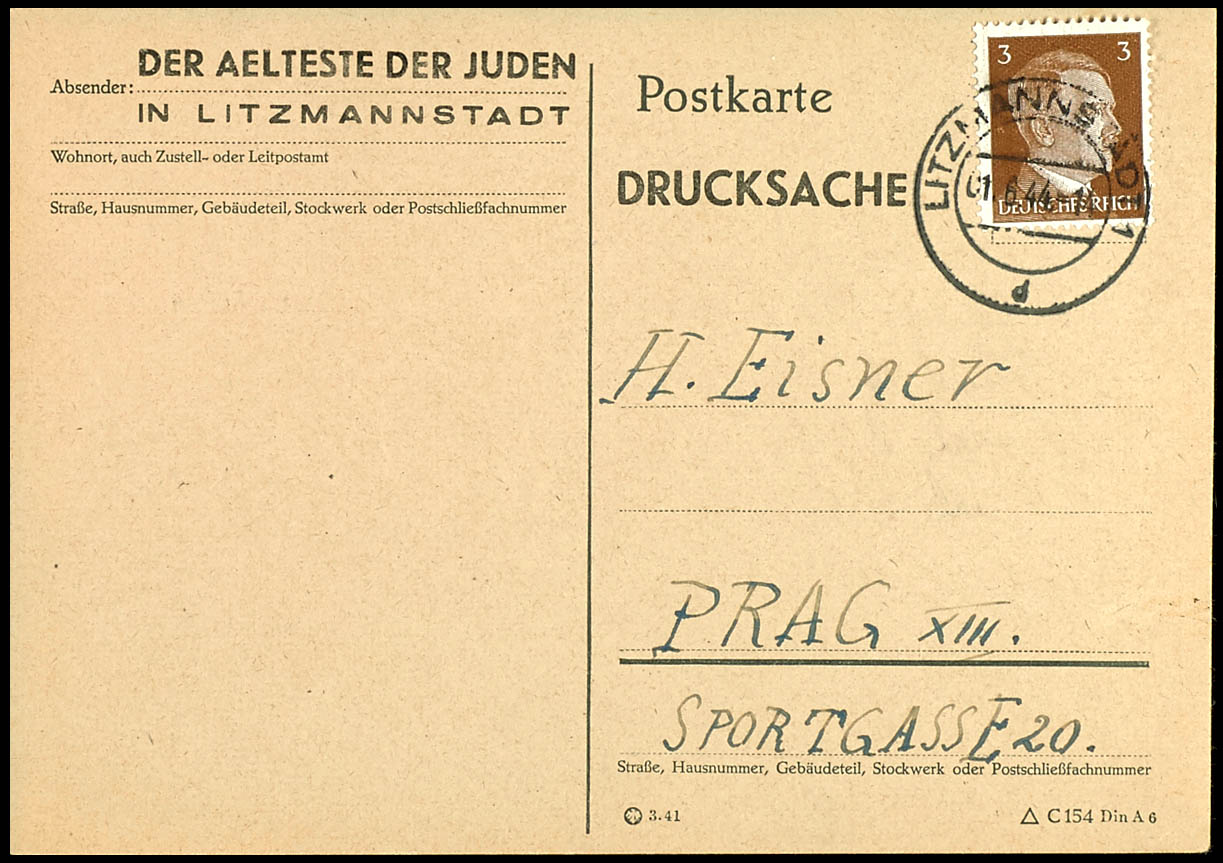 DER AELTESTE DER JUDEN
Absender:
IN LITZMANNSTADT
Wohnort, auch Zustell- oder Leitpostamt
Straße, Hausnummer, Gebäudeteil, Stockwerk oder Postschließfachnummer
Postkarte
DRUCKSACHE
3 3
DEUTSCHES REICH
LITZMANNSTADT 1
01.6.44
d
H. Eisner
PRAG XIII.
SPORTGASSE 20.
Straße, Hausnummer, Gebäudeteil, Stockwerk oder Postschließfachnummer
3.41
C 154 Din A 6